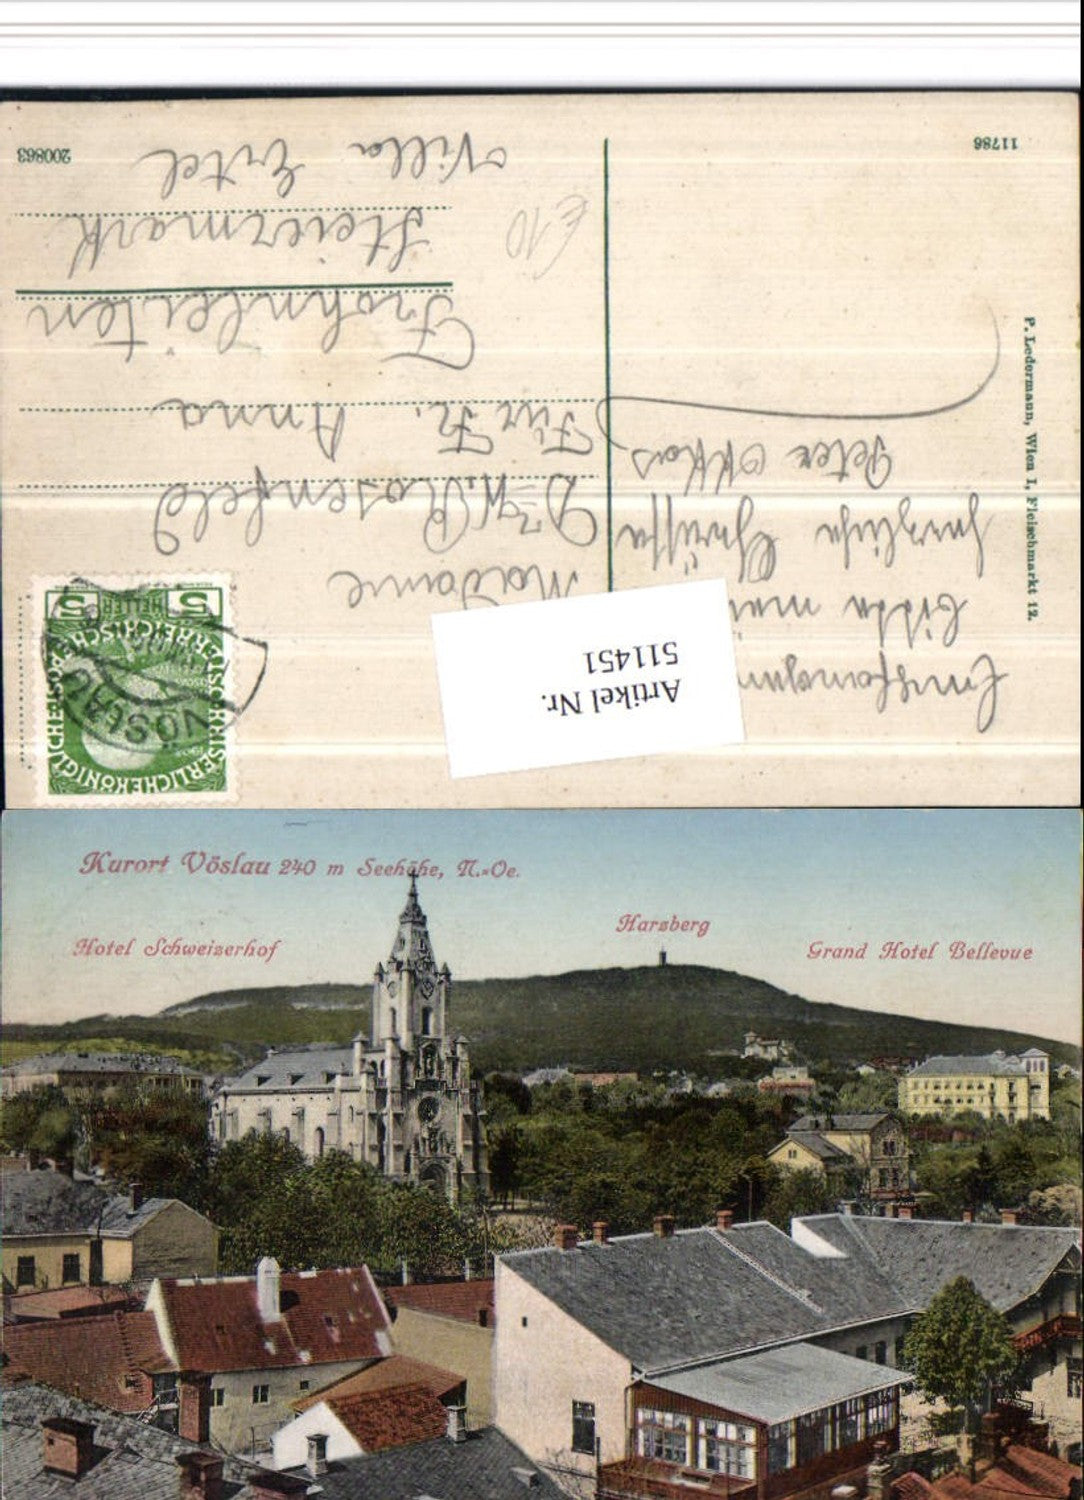 Empfangen
bitte meine
herzliche Grüsse
Peter Okkos
P. Ledermann, Wien I, Fleischmarkt 12.
11786
Artikel Nr.
511451
KAISERLICHEKÖNIGLICHE ÖSTERREICHISCHE
5 HELLER 5
VÖSLAU
Madame
Dr W. Rosenfeld
Für Fr. Anna
Frohnleiten
Steiermark
Villa Ertel
€10
200863
Kurort Vöslau 240 m Seehöhe, N.=Oe.
Hotel Schweizerhof
Harzberg
Grand Hotel Bellevue